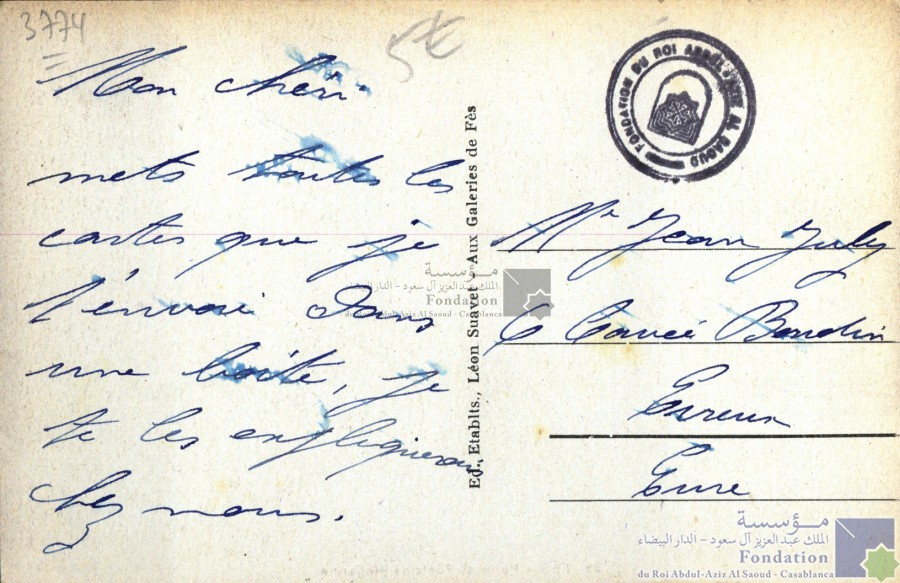 3774
5€
Mon chéri
mets toutes les
cartes que je
t'envoie dans
une boîte, je
te les expliquerai
chez nous.
Ed., Etablts., Léon Suavet - Aux Galeries de Fès
FONDATION DU ROI ABDUL AZIZ AL SAOUD
Mr Jean July
Evreux
Eure
مؤسسة
الملك عبد العزيز آل سعود - الدار البيضاء
Fondation
du Roi Abdul-Aziz Al Saoud - Casablanca
مؤسسة
الملك عبد العزيز آل سعود - الدار البيضاء
Fondation
du Roi Abdul-Aziz Al Saoud - Casablanca